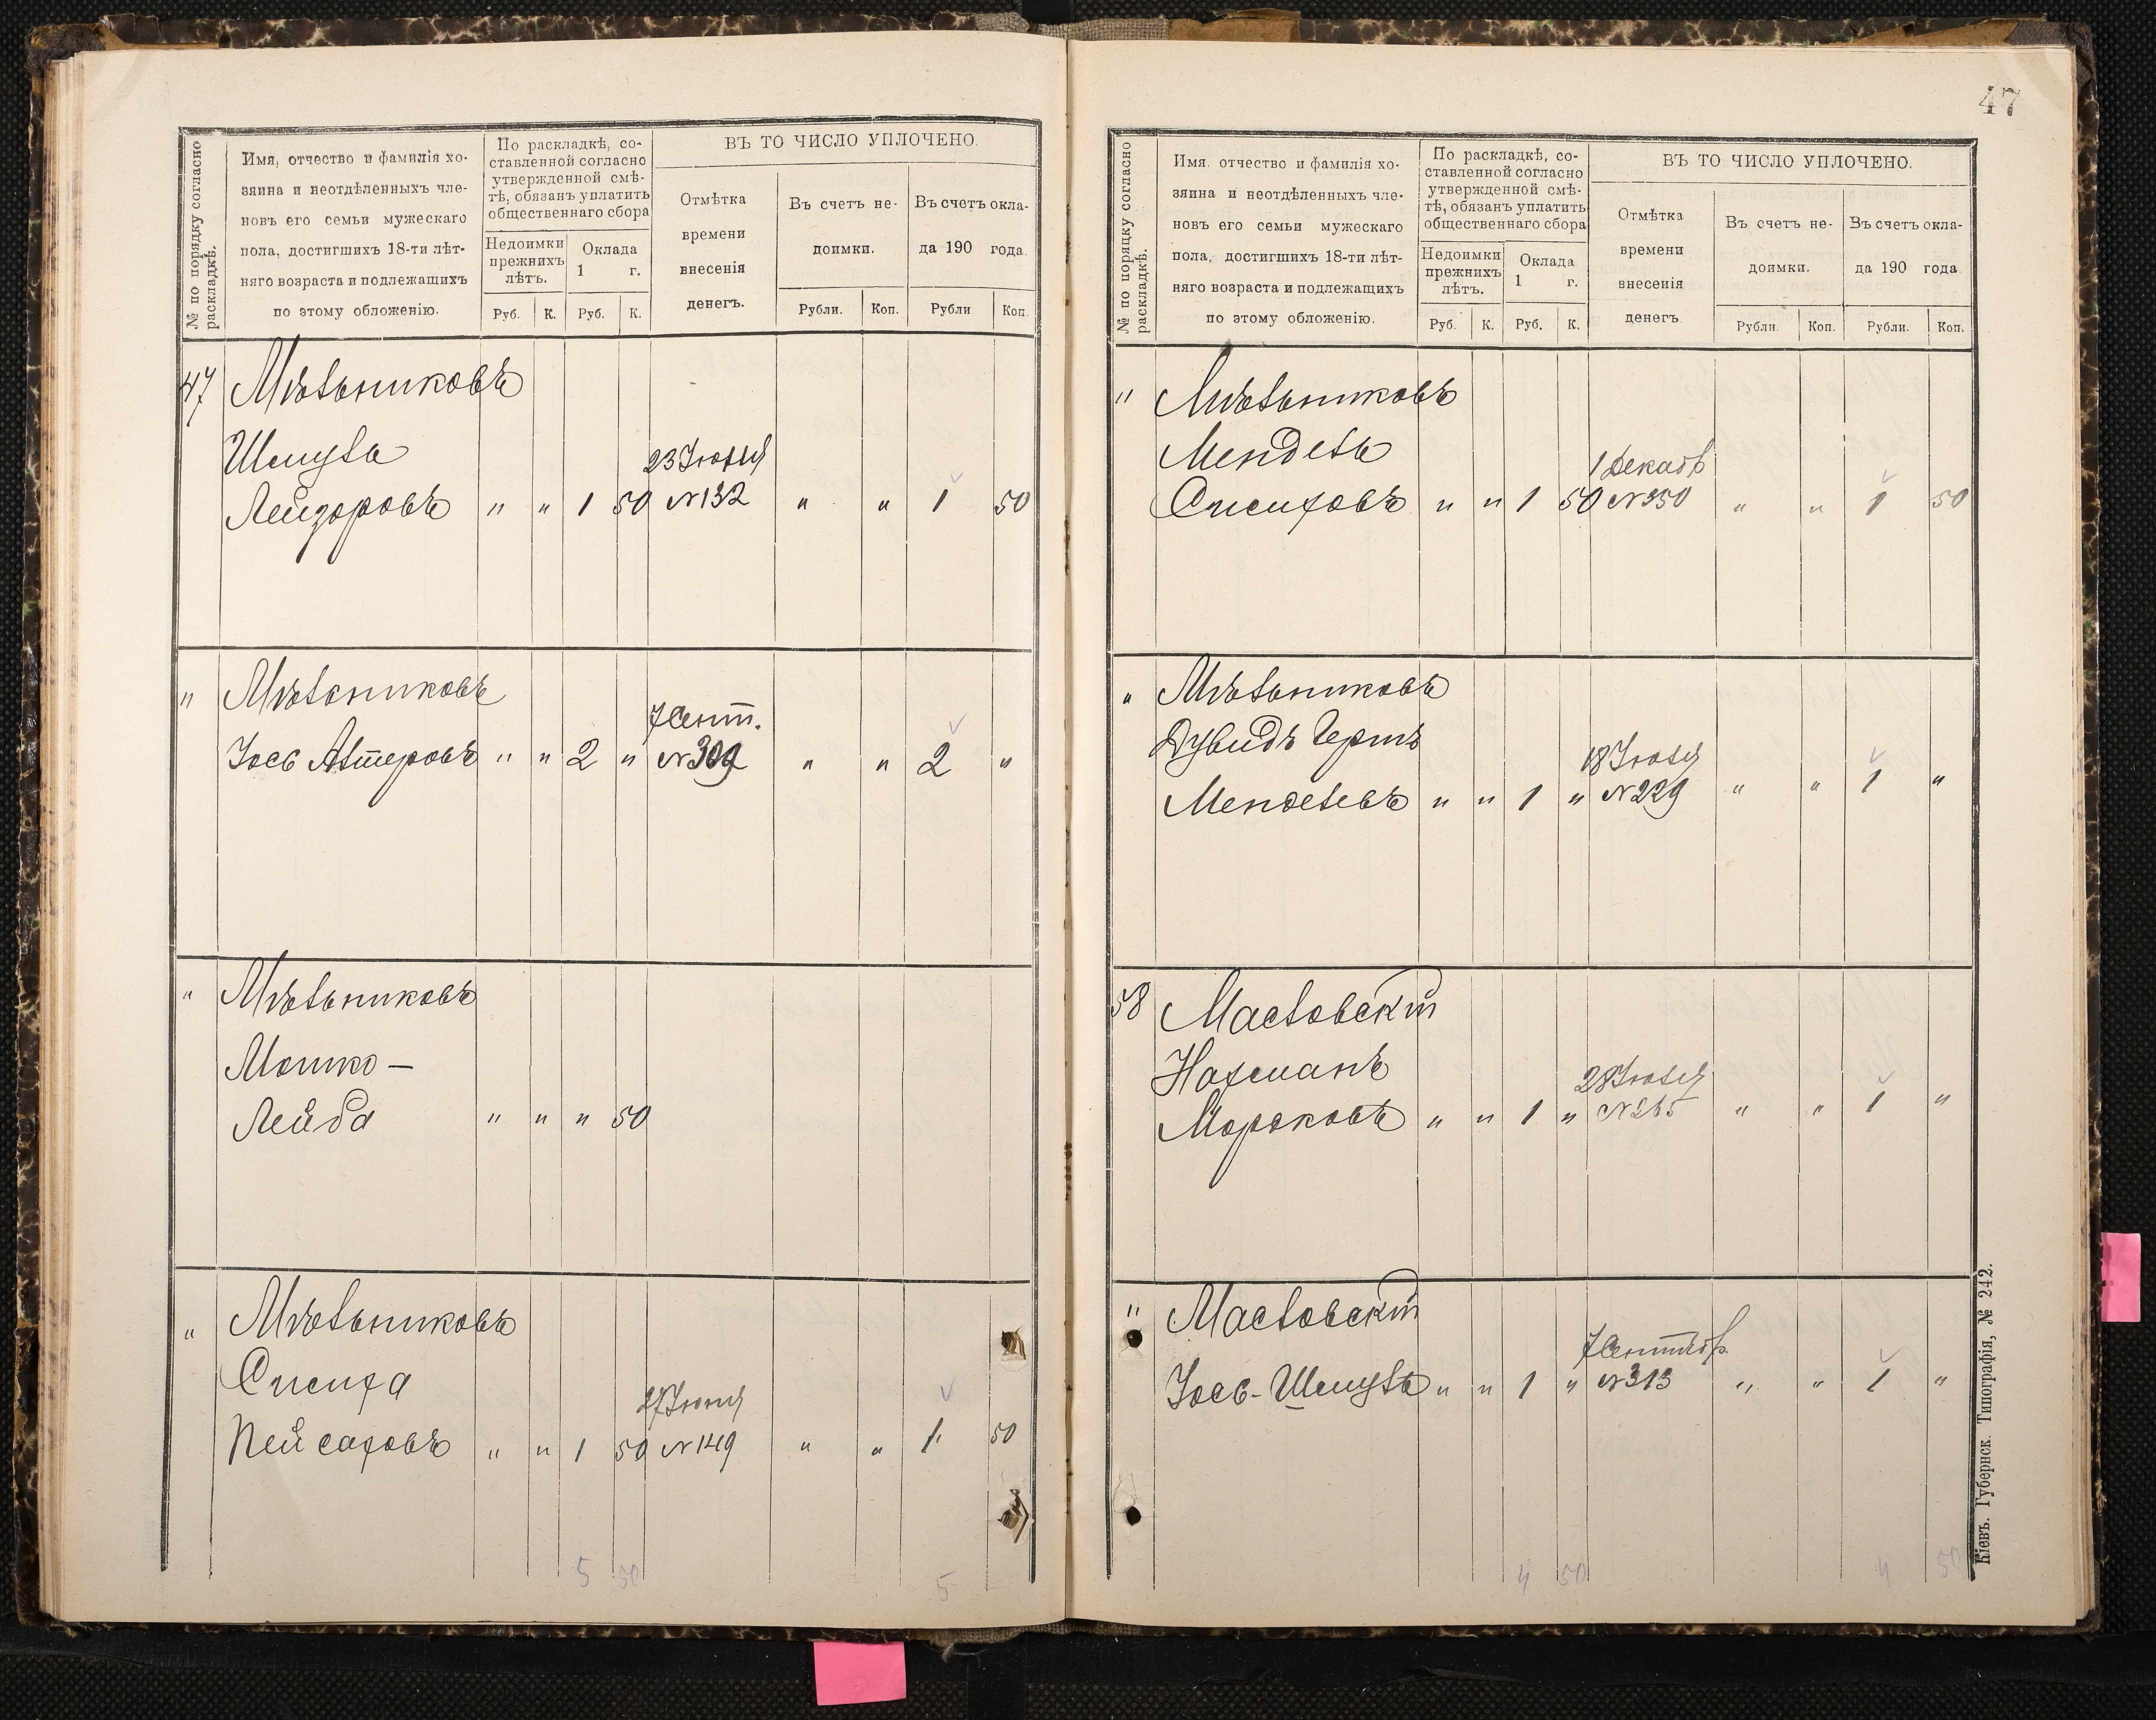 № по порядку согласно раскладкѣ.
Имя, отчество и фамилія хо-
зяина и неотдѣленныхъ чле-
новъ его семьи мужескаго
пола, достигшихъ 18-ти лѣт-
няго возраста и подлежащихъ
по этому обложенію.
По раскладкѣ, со-
ставленной согласно
утвержденной смѣ-
тѣ, обязанъ уплатить
общественнаго сбора
Недоимки
прежнихъ
лѣтъ.
Оклада
1 г.
Руб. К. Руб. К.
ВЪ ТО ЧИСЛО УПЛОЧЕНО.
Отмѣтка
времени
внесенія
денегъ.
Въ счетъ не-
доимки.
Въ счетъ окла-
да 190 года.
Рубли. Коп. Рубли Коп.
47 Мѣльниковъ
Шмуль 23 Іюня
Лейзоровъ " " 1 50 №132 " " 1 50
" Мѣльниковъ
7 Сент.
Іось Алтеровъ " " 2 " №309 " " 2 "
" Мѣльниковъ
Мошко —
Лейба " " " 50
" Мѣльниковъ
Снсиха 27 Іюня
Пейсаховъ " " 1 50 №149 " " 1 50
5 50 5
47
№ по порядку согласно раскладкѣ.
Имя. отчество и фамилія хо-
зяина и неотдѣленныхъ чле-
новъ его семьи мужескаго
пола, достигшихъ 18-ти лѣт-
няго возраста и подлежащихъ
по этому обложенію.
По раскладкѣ, со-
ставленной согласно
утвержденной смѣ-
тѣ, обязанъ уплатить
общественнаго сбора
Недоимки
прежнихъ
лѣтъ.
Оклада
1 г.
Руб. К. Руб. К.
ВЪ ТО ЧИСЛО УПЛОЧЕНО.
Отмѣтка
времени
внесенія
денегъ.
Въ счетъ не-
доимки.
Въ счетъ окла-
да 190 года.
Рубли. Коп. Рубли. Коп.
" Мѣльниковъ
Мендель 1 Декаб
" " 1 50 №350 " " 1 50
" Мѣльниковъ
Дувидъ Гершъ 18 Іюля
Менделевъ " " 1 " №229 " " 1 "
58 Масловскій
Нахманъ 28 Іюля
Морѣковъ " " 1 " №265 " " 1 "
" Масловскій
7 Сентяб.
Іось-Шмуль " " 1 " №313 " " 1 "
4 50 4 50
Кіевъ. Губернск. Типографія, № 242.